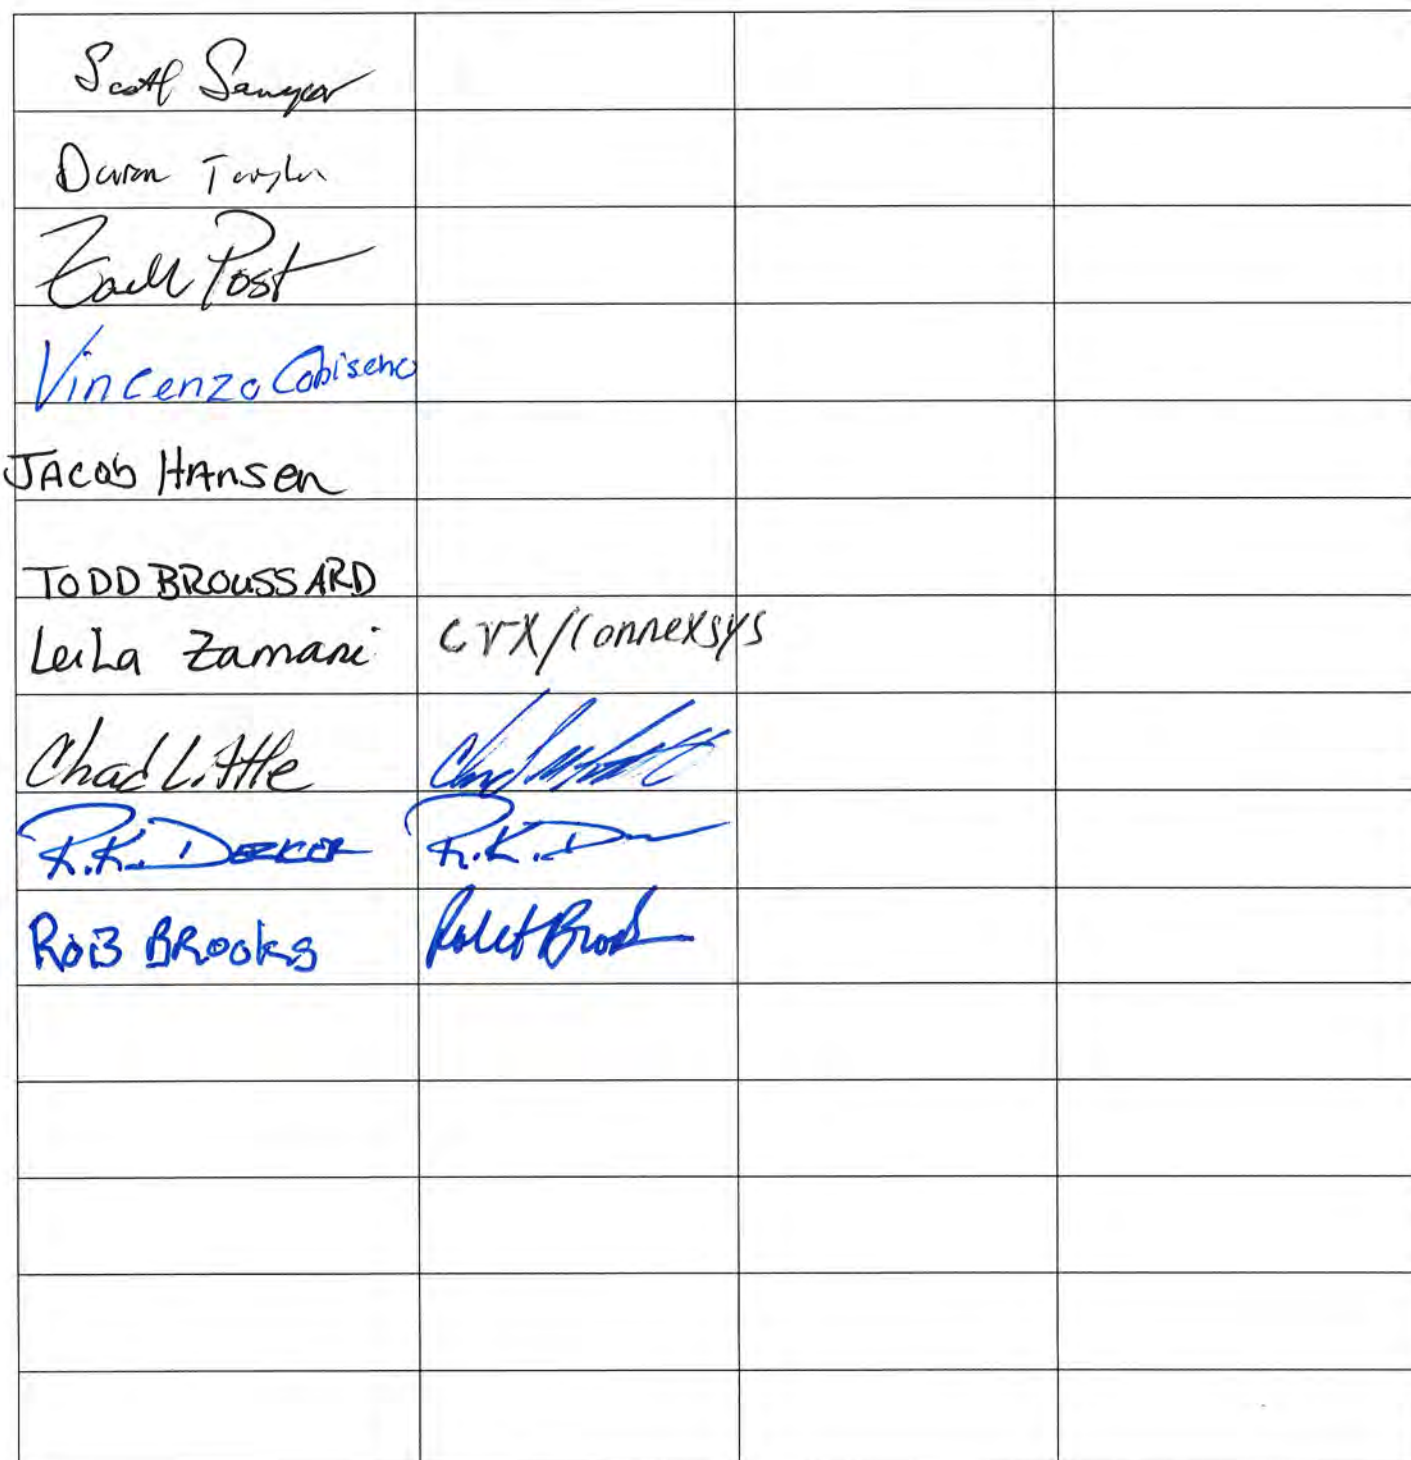 Scott Sawyer
Daron Taylor
Zach Post
Vincenzo Cabiseno
JAcob HAnsen
TODD BROUSSARD
Leila Zamani CVX/Connexsys
Chad Little
R.K. Decker R.K. D
RoB BRooks Robert Brooks